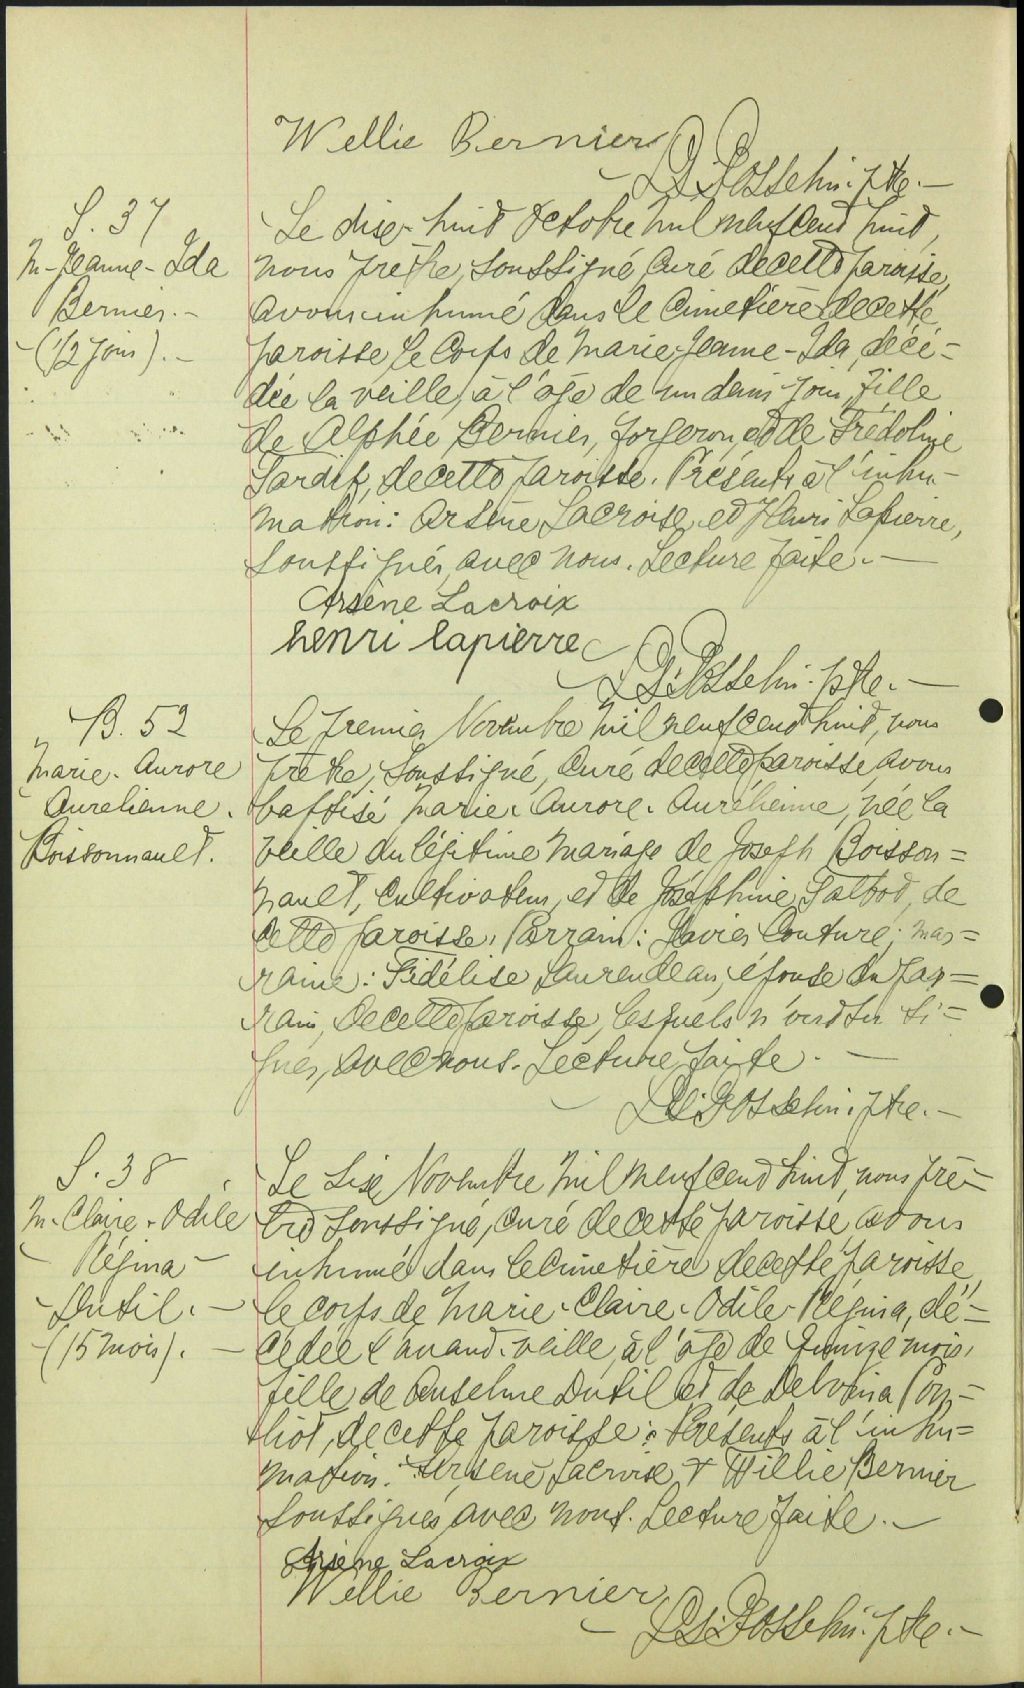 Wellie Bernier
S. 37
M-Jeanne-Ida
Bernier.-
(1/2 jour).-
Le dix-huit Octobre mil neuf cent huit,
nous prêtre, soussigné, Curé de cette paroisse,
avons inhumé dans le Cimetière de cette
paroisse le Corps de Marie-Jeanne-Ida, décé=
dée la veille, à l'âge de un demi jour, fille
de Alphée Bernier, forgeron, et de Frédoline
Tardif, de cette paroisse. Présents à l'inhu-
mation: Arsène Lacroix, et Henri Lapierre,
soussignés, avec nous. Lecture faite.-
Arsène Lacroix
henri lapierre
B. 52
Marie-Aurore
Aurelienne.
Boissonnault.
Le premier Novembre mil neuf cent huit, nous
prêtre, soussigné, Curé de cette paroisse, avons
baptisé Marie-Aurore-Aurélienne, née la
veille du légitime mariage de Joseph Boisson=
nault, Cultivateur, et de Joséphine Talbot, de
cette paroisse. Parrain: Xavier Couture; mar=
raine: Fidélise Laurendeau, épouse du par=
rain, de cette paroisse, lesquels n'ont su si=
gner, avec nous. Lecture faite.-
S. 38
M-Claire-Odile
Régina-
Dutil.-
(15 mois).-
Le six Novembre mil neuf cent huit, nous prê=
tre soussigné, curé de cette paroisse, avons
inhumé dans le Cimetière de cette paroisse,
le corps de Marie-Claire-Odile-Régina, dé=
cédée l'avant-veille, à l'âge de quinze mois,
fille de Anselme Dutil et de Delvina
de cette paroisse. Présents à l'inhu=
mation: Arsène Lacroix & Willie Bernier
soussignés, avec nous. Lecture faite.-
Arsène Lacroix
Wellie Bernier